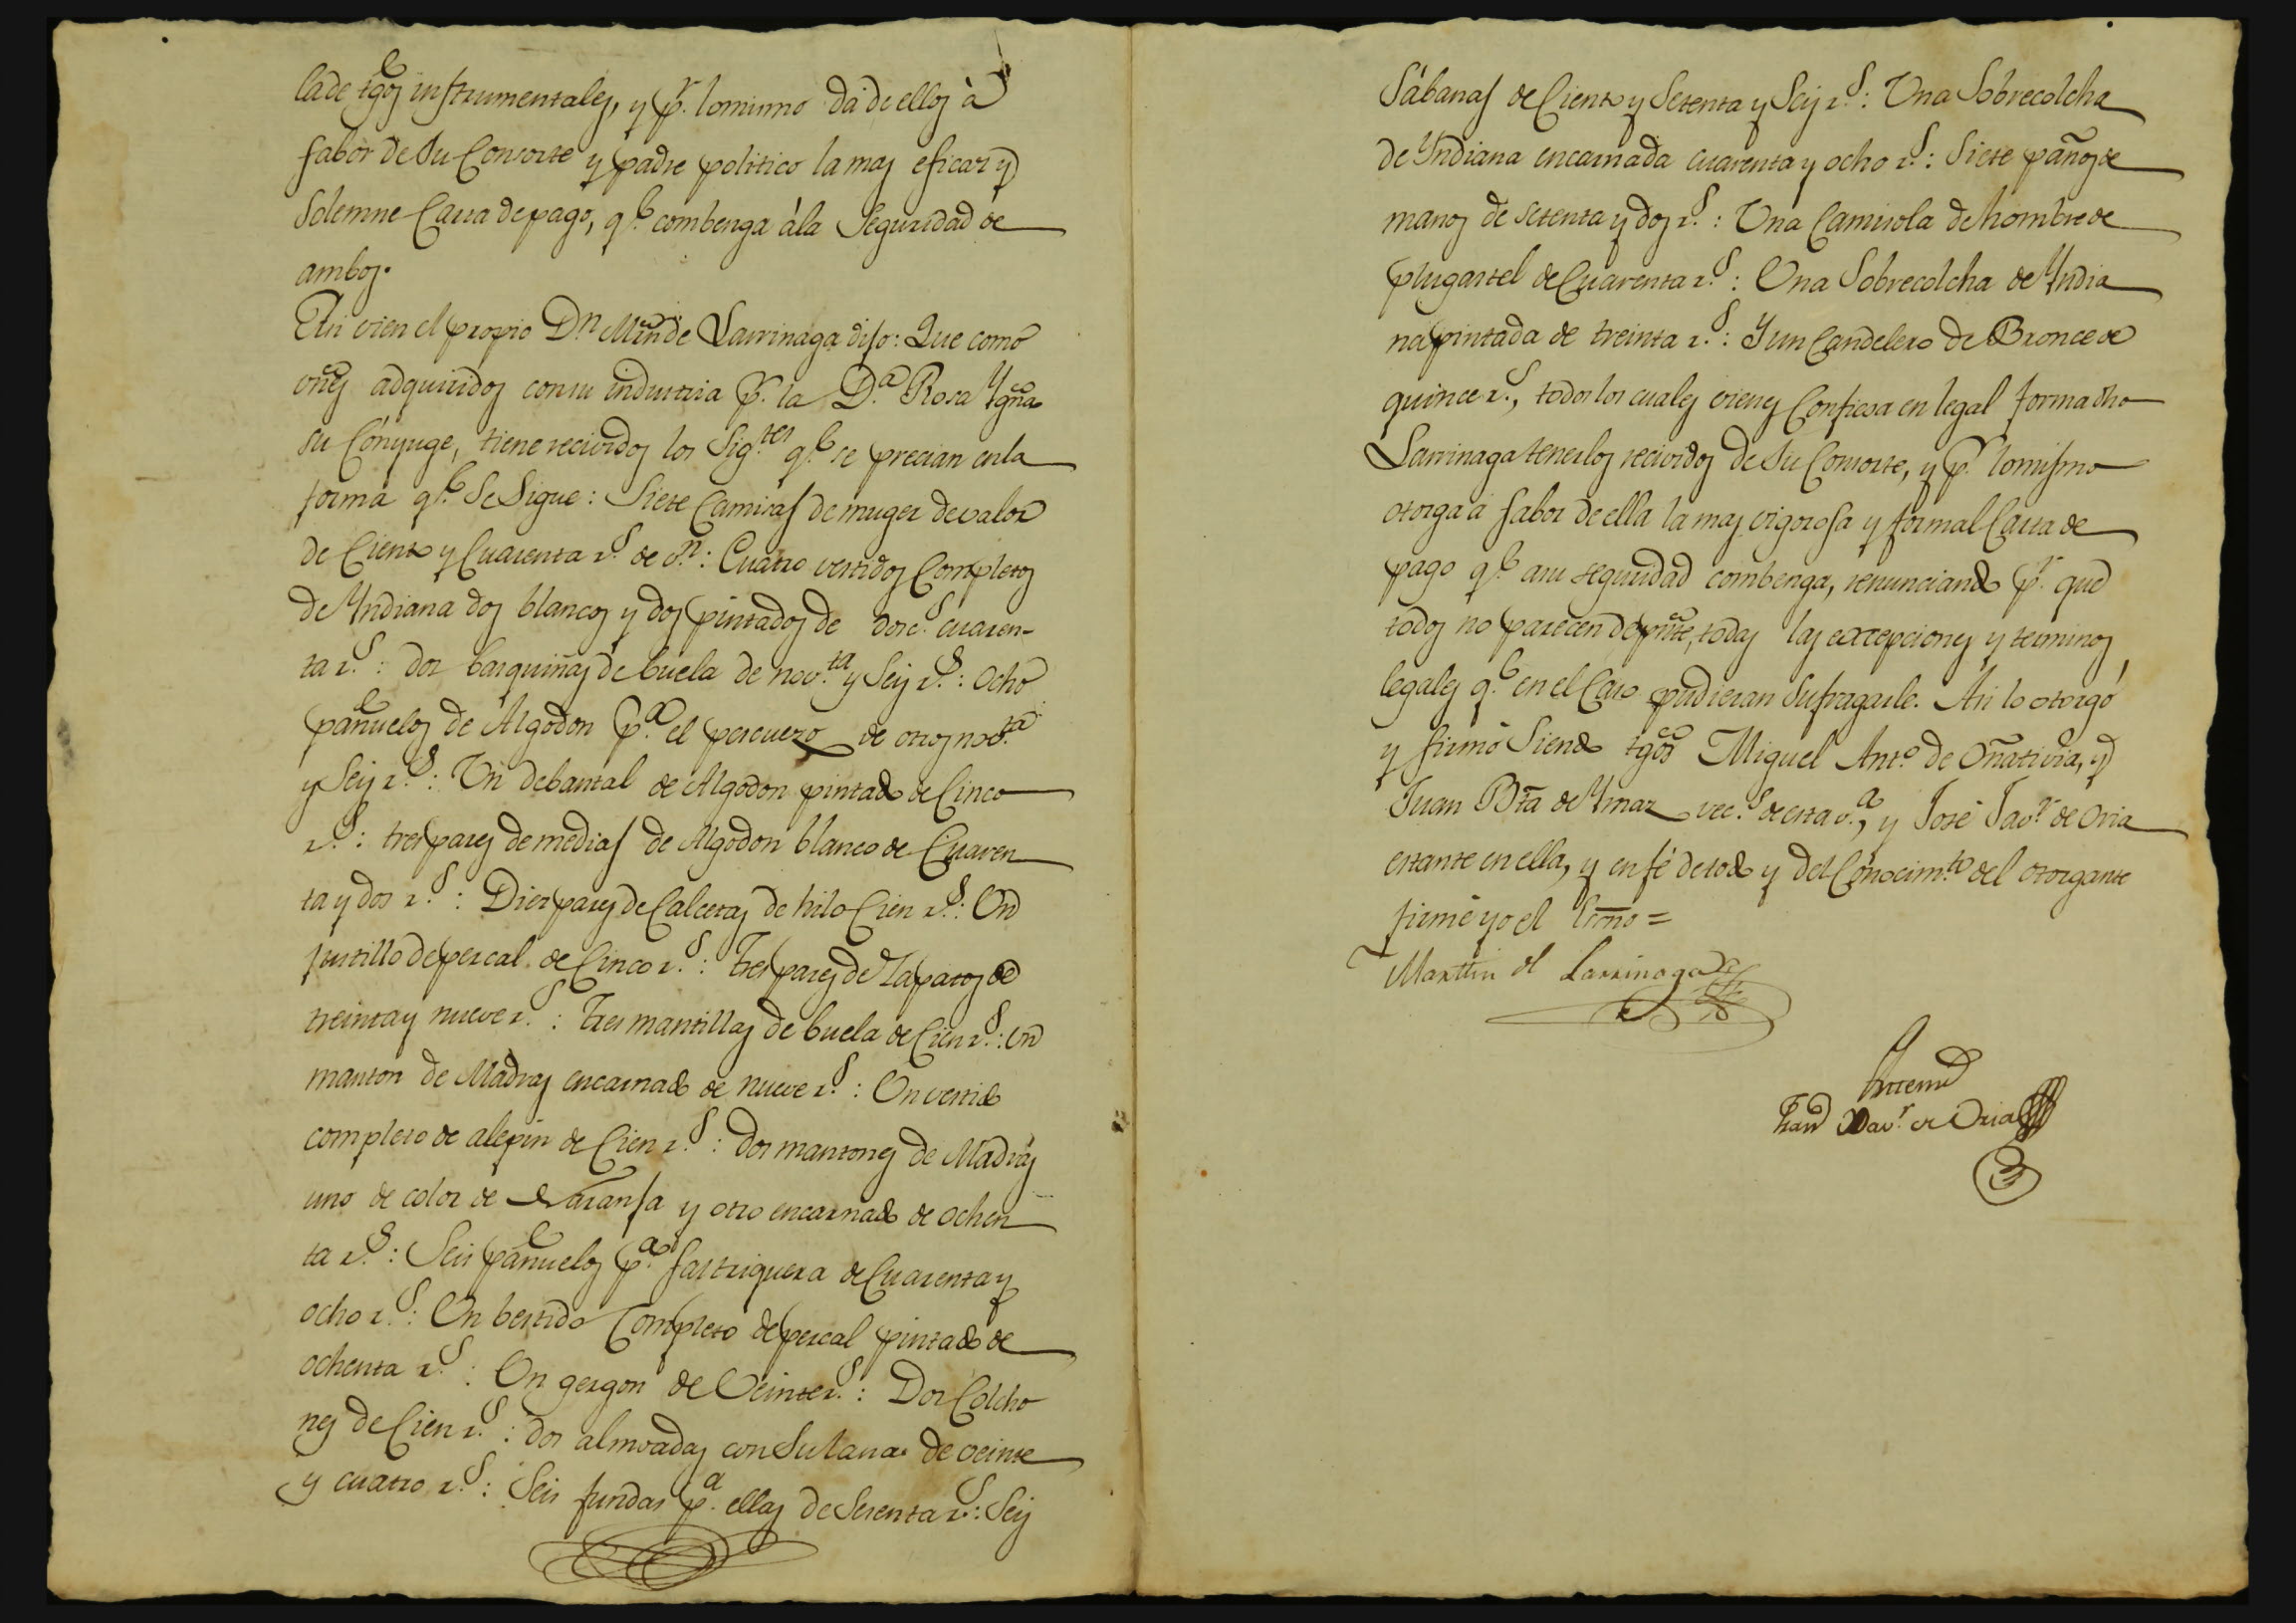 la de tgos instrumentales, y pr. lo mismo dá de ellos á
fabor de Su Consorte y padre politico la mas eficaz y
Solemne Carta de pago, qe. combenga á la Seguridad de
ambos.
Asi vien el propio Dn. Mrn de Larrinaga dijo: Que como
vnes adquiridos con su industria pr. la Da. Rosa Ygna.
su Cónyuge, tiene recividos los Sigtes. qe. se precian en la
forma qe. Se Sigue: Siete Camisas de muger de valor
de Ciento y Cuarenta rs. de vn.: Cuatro vestidos Completos
de Yndiana dos blancos y dos pintados de dosc.s cuaren-
ta rs.: dos basquiñas de buela de novta. y Seis rs.: Ocho
pañuelos de Algodon pa. el pescuezo de otros novta.
y Seis rs.: Un debantal de Algodon pintado de Cinco
rs.: tres pares de medias de Algodon blanco de Cuaren
ta y dos rs.: Diez pares de Calcetas de hilo Cien rs.: Un
justillo de percal de Cinco rs.: Tres pares de Zapatos de
treinta y nueve rs.: Tres mantillas de buela de Cien rs.: Un
manton de Madras encarnado de nueve rs.: Un vestido
completo de alepin de Cien rs.: dos mantones de Madrás
uno de color de Naranja y otro encarnado de ochen
ta rs.: Seis pañuelos pa. fastriquera de Cuarenta y
ocho rs.: Un bestido Completo de percal pintado de
ochenta rs.: Un gergon de Veinte rs.: Dos Colcho
nes de Cien rs.: dos almoadas con Su lana de veinte
y cuatro rs.: Seis fundas pa. ellas de Sesenta rs.: Seis
Sábanas de Ciento y Setenta y Seis rs.: Una Sobrecolcha
de Yndiana encarnada cuarenta y ocho rs.: Siete paños de
manos de setenta y dos rs.: Una Camisola de hombre de
plugastel de Cuarenta rs.: Una Sobrecolcha de Yndia
na pintada de treinta rs.: Y un Candelero de Bronce de
quince rs., todos los cuales vienes Confiesa en legal forma dho
Larrinaga tenerlos recividos de Su Consorte, y pr. lo mismo
otorga á fabor de ella la mas vigorosa y formal Carta de
pago qe. a su seguridad combenga, renunciando pr. que
todos no parecen de pnte, todas las excepciones y terminos
legales qe. en el Caso pudieran Sufragarle. Asi lo otorgó
y firmó Siendo tgos Miguel Anto. de Oñativia, y
Juan Bta de Ymaz vecs. de esta va., y José Javr. de Oria
estante en ella, y en fé de todo y del Conocimto. del otorgante
firmé yo el Escno =
Marttin de Larrinaga
Antemi
Fran Xavr. de Oria